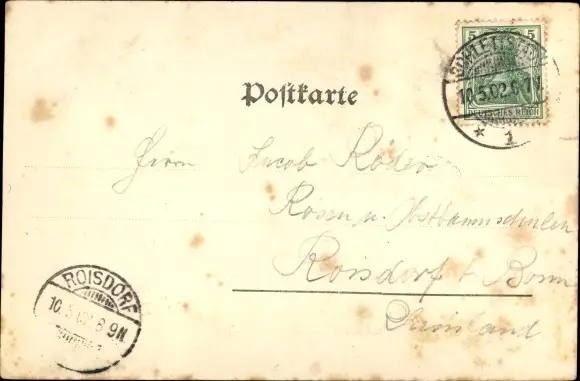 5 5
SCHLETTSTADT
10.5.02.6-7N
DEUTSCHES REICH
* 1
Postkarte
Herrn Jacob Röder
Rosen u. Obstbaumschulen
Roisdorf b. Bonn
Rheinland
ROISDORF
10.5.02.8-9N